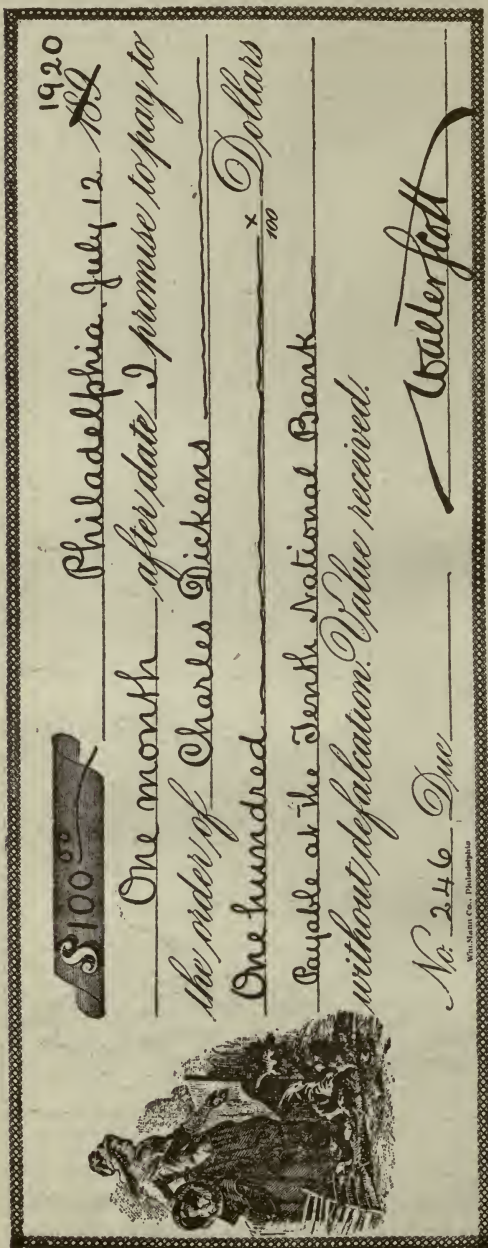 $100.00
Philadelphia, July 12 1920 189
One month after date I promise to pay to
the order of Charles Dickens
One hundred x/100 Dollars
Payable at the Tenth National Bank
without defalcation. Value received.
No. 246 Due
Walter Scott
Wm. Mann Co., Philadelphia